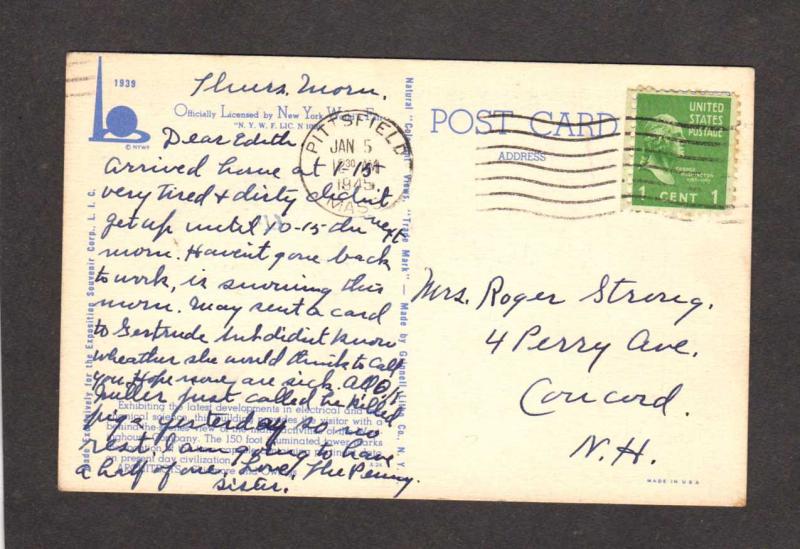 1939
© NYWF
Thurs. Morn.
Officially Licensed by New York World's Fair
"N. Y. W. F. LIC. N
Dear Edith
Arrived home at 1-15
very tired & dirty didn't
get up until 10-15 the next
morn. Haven't gone back
to work, is snowing this
morn. May sent a card
to Gertrude but didn't know
wheather she would think to call
you. Hope none are sick.
just called he killed
pigs yesterday so no
rest. I am going to have
a half of one. Love, The Penny
sister.
Exhibiting the latest developments in electrical and
science, this building provides the visitor with a
behind-the-scenes view of the
Company. The 150 foot illuminated tower marks
in present day civilization.
Made Exclusively for the Exposition Souvenir Corp., L. I. C.
Natural "Color Views, "Trade Mark" — Made by Litho Co., N. Y.
PITTSFIELD
JAN 5
1945
MASS
POST CARD
ADDRESS
UNITED
STATES
POSTAGE
GEORGE
WASHINGTON
1 CENT 1
Mrs. Roger Strong.
4 Perry Ave.
Concord.
N. H.
MADE IN U.S.A.